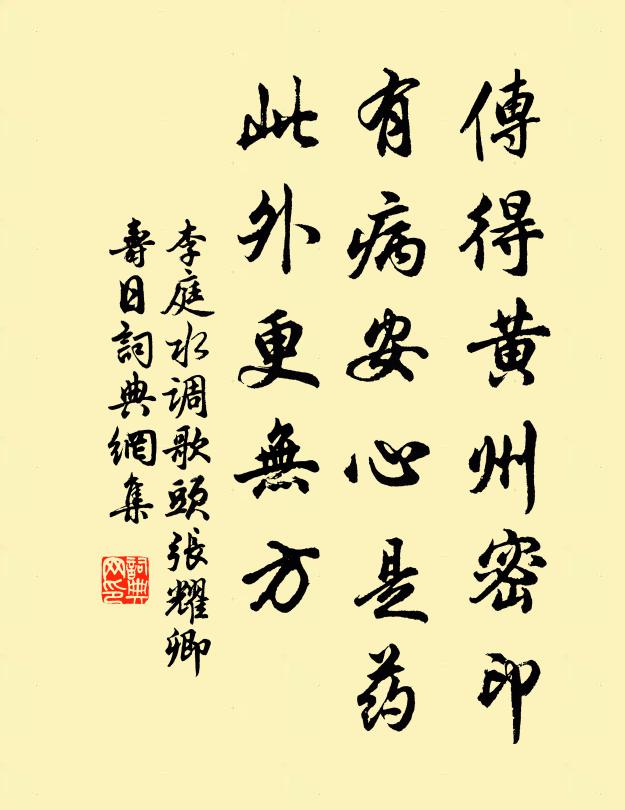 傳得黄州密印
有病安心是药
此外更無方
李庭水调歌頭張耀卿
壽日詞典網集
詞典网印